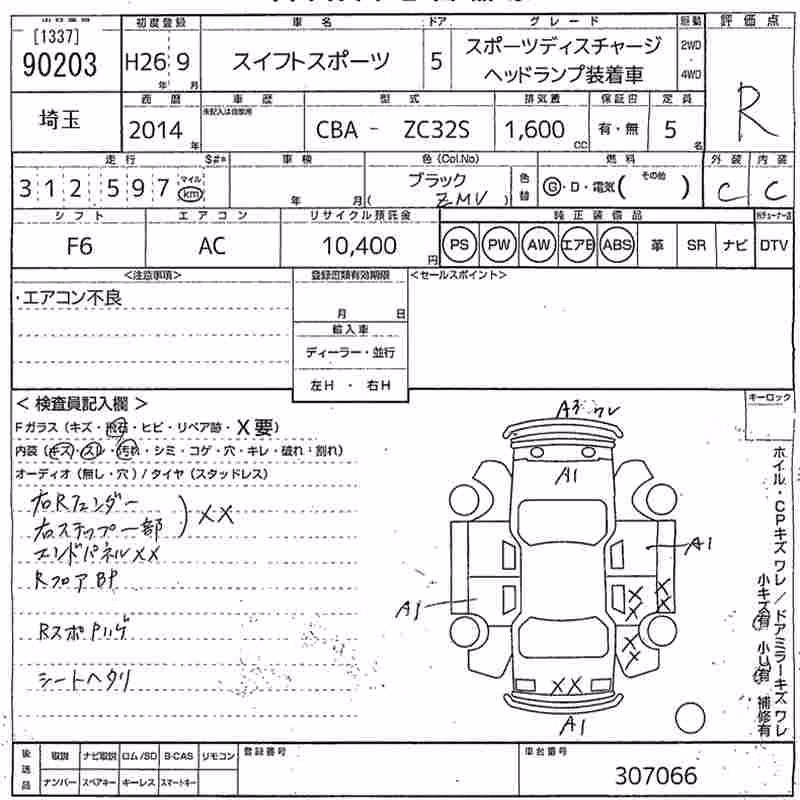 出品番号 初度登録 車名 ドア グレード 駆動 評価点
[1337]
90203 H26年 9月 スイフトスポーツ 5 スポーツディスチャージ 2WD
ヘッドランプ装着車 ・4WD R
埼玉 西暦 車歴 型式 排気量 保証書 定員
未記入は自家用
2014年 CBA - ZC32S 1,600CC 有・無 5名
走行 S#* 車検 色(Col.No) 燃料 外装 内装
312,597 マイル km 年 月 ブラック 色替 G・D・電気( その他 ) C C
( ZMV )
シフト エアコン リサイクル預託金 純正装備品
F6 AC 10,400円 PS PW AW エアB ABS 革 SR ナビ DTV
<注意事項> 登録書類有効期限 <セールスポイント>
・エアコン不良
月 日
輸入車
ディーラー・並行
左H ・ 右H
<検査員記入欄> キーロック
Fガラス(キズ・飛石・ヒビ・リペア跡・X要)
内装(キズ・スレ・汚れ・シミ・コゲ・穴・キレ・破れ・割れ)
オーディオ(無し・穴)/タイヤ(スタッドレス)
右Rフェンダー
右ステップ一部 )XX
エンドパネルXX
RフロアBP
Rスポ Pハゲ
シートヘタリ
ワレ
A1
A1
A1
XX
XX
XX
XX
A1
ホイル・CPキズ ワレ/ドアミラーキズ ワレ
小キズ有 小U有 補修有
後送品 取説 ナビ取説 ロム/SD B-CAS リモコン 登録番号 車台番号
ナンバー スペアキー キーレス スマートキー 307066